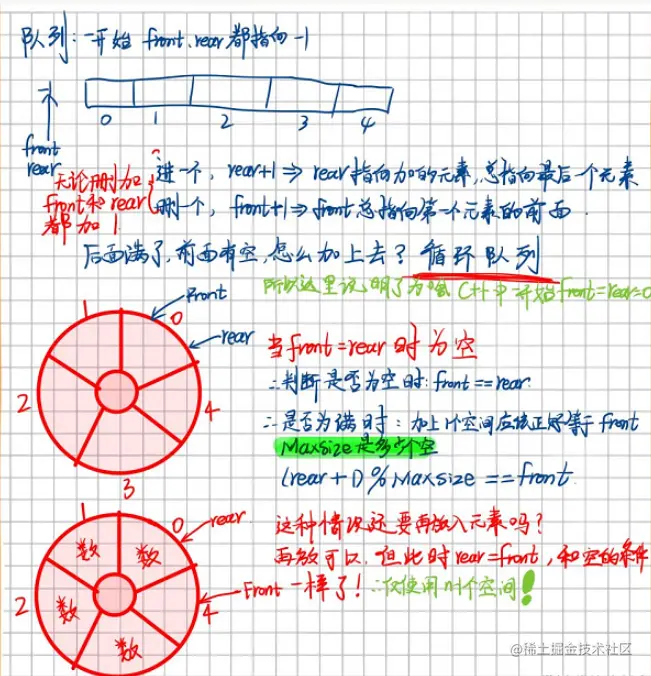 队列：一开始 front.rear都指向-1
0 1 2 3 4
front
rear
无论删加
front和rear
都加1
进一个，rear+1⇒rear指向加的元素，总指向最后一个元素
删一个，front+1⇒front总指向第一个元素的前面.
后面满了，前面有空，怎么加上去？循环队列
所以这里说明了为啥C++中开始front=rear=0
Front
rear
0
1
2
3
4
当front=rear时为空
∴判断是否为空时：front==rear
∴是否为满时：加上1个空间应该正好等于front
Maxsize是多少个空
(rear+1)%Maxsize==front
0
1
2
4
rear
Front
数 数 数 数
这种情况还要再放入元素吗？
再放可以，但此时rear=front，和空的条件
一样了！∴仅使用n-1个空间！
@稀土掘金技术社区